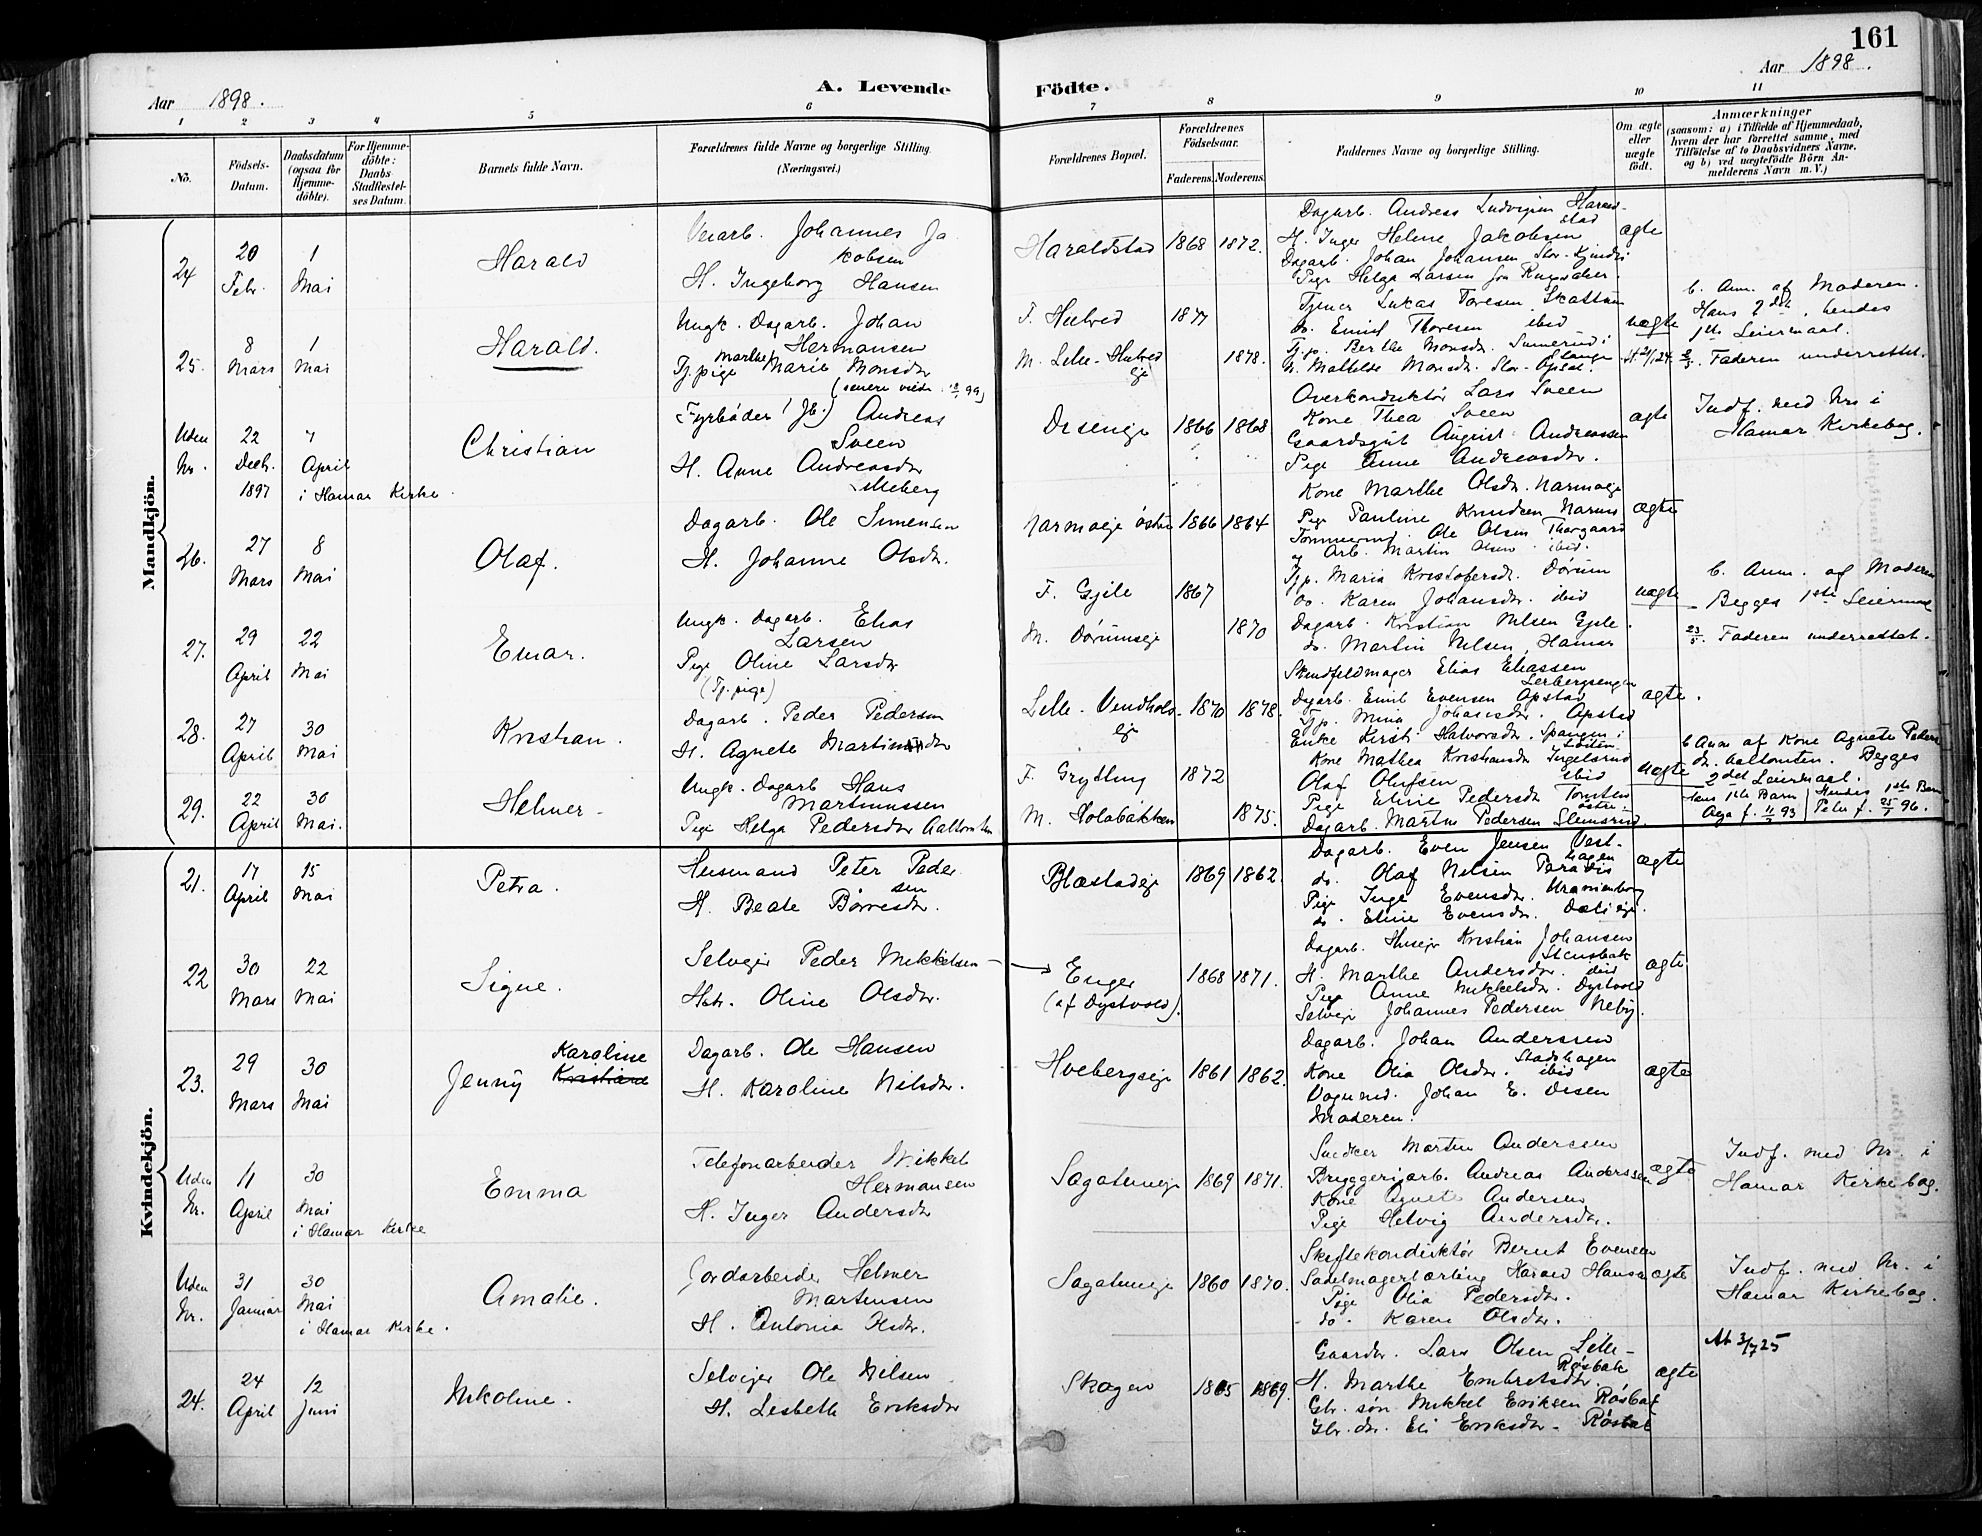 161
Aar 1898.
A. Levende
Födte.
Aar 1898.
1 2 3 4 5 6 7 8 9 10 11
No.
Födsels-
Datum.
Daabsdatum
(ogsaa for
Hjemme-
döbte).
For Hjemme-
döbte:
Daabs
Stadfæstel-
ses Datum.
Barnets fulde Navn.
Forældrenes fulde Navne og borgerlige Stilling.
(Næringsvei.)
Forældrenes Bopæl.
Forældrenes
Födselsaar.
Faderens. Moderens.
Faddernes Navne og borgerlige Stilling.
Om ægte
eller
uægte
födt.
Anmærkninger
(saasom: a) i Tilfælde af Hjemmedaab,
hvem der har forrettet samme, med
Tilföielse af to Daabsvidners Navne,
og b) ved uægtefödte Börn An-
melderens Navn m. V.)
Mandkjön.
24
20
Febr.
1
Mai
Harald
Johannes Ja
kobsen
H. Ingeborg Hansen
Haraldstad
1868 1872.
Dagarb. Andreas Ludvigsen Harald-
stad
H. Inger Helene Jakobsen
Dagarb. Johan Johansen
Pige Helga Larsen
ægte
25.
8
Mars
1
Mai
Harald.
Ungk. Dagarb. Johan
Hermansen
Tj.pige Marthe Marie Monsdr
F. Hulved
1877
M. Lille-Hulved
eje
1878.
Tjener Lukas Toresen Skattum
do. Emil Thoresen ibid
Tj.p. Berthe Monsdr.
Stange
uægte
b. Anm. af Moderen.
Hans 2det, hendes
1ste Leiermaal.
Faderen underrettet.
Uden
Nr.
22
Decb.
1897
April
i Hamar Kirke.
Christian
Fyrbøder (Jb.) Andreas
Sveen
H. Anne Andreasdtr
Lilleberg
Diseneje
1866 1868
Overkonduktør Lars Sveen
Kone Thea Sveen
Gaardsgut August Andreassen
Pige Anne Andreasdtr.
ægte
Indf. med Nr i
Hamar Kirkebog.
26.
27
Mars
8
Mai
Olaf.
Dagarb. Ole Simensen
H. Johanne Olsdtr.
Narmoeje østre
1866 1864
Kone Marthe Olsdtr. Narmoeje
Pige Pauline Knudsen
Tømmermd. Ole Olsen Thorgaard
og Arb. Martin Olsen ibid.
ægte
27.
29
April
22
Mai
Einar.
Ungk. Dagarb. Elias
Larsen
Pige Oline Larsdtr
(Tj.pige)
F. Gjile
1867
M. Dørumseje
1870
Tj.p. Maria Kristofersdtr. Dørum
do. Karen Johansdtr. ibid
Dagarb. Kristian Nilsen Gjile.
do. Martin Nilsen, Hamar
uægte
b. Anm. af Moderen
Begges 1ste Leiermaal
23/5. Faderen underrettet.
28.
27
April
30
Mai
Kristian.
Dagarb. Peder Pedersen
H. Agnete Martinsdtr
Lille-Vendkols-
eje
1870 1878.
Skindfeldmager Elias Eliassen
Lerbergsengen
Dagarb. Emil Evensen Opstad
Tj.p. Mina Johansdtr. Opstad
Enke Kirsti Halvorsdtr. Spangen i
Løiten
ægte.
29.
22
April
30
Mai.
Helmer.
Ungk. Dagarb Hans
Martinussen
Pige Helga Pedersdtr
F. Grytting
1872
M. Holobakken
1875.
Kone Mathea Kristiansdtr Ingelsrud
Olaf Olufsen ibid
Pige Eline Pedersdtr Tomten
østre.
Dagarb. Martin Pedersen Slemsrud.
uægte
b Anm af Kone Agnete Peders
dtr. Begges
2det Leiermaal.
Hans 1ste Barn
Aga f. 11/2 93
Hendes 1ste Barn
Peter f. 96.
Kvindekjön.
21.
17
April
15
Mai
Petra.
Husmand Peter Peder
sen
H. Beate Børresdtr.
Blæstadeje
1869 1862.
Dagarb. Even Jensen Vest-
hagen
do. Olaf Nilsen Paradis
Pige Inga Evensdtr. Uranienborg
do. Eline Evensdtr.
ægte
22
30
Mars
22
Mai
Signe.
Selvejer Peder Mikkelsen
Hstr. Oline Olsdtr.
Enger
(af Dystvold).
1868 1871.
Dagarb. Kristian Johansen
Stensbak
H. Marthe Andersdtr. ibid
Pige Anne Mikkelsdtr. Dystvold
Selveje Johannes Pedersen Neby.
ægte
23.
29
Mars
30
Mai
Karoline
Jenny Kristiane
Dagarb. Ole Hansen
H. Karoline Nilsdtr.
Hvebergseje
1861 1862.
Dagarb. Johan Anderssen
Stadshagen
Kone Olia Olsdtr. ibid
Vognmd. Johan E. Disen
Moderen.
ægte
Uden
Nr.
11
April
30
Mai
i Hamar Kirke
Emma
Telefonarbeider Mikkel
Hermansen
H. Inger Andersdtr
Sagatuneje
1869 1871.
Snedker Morten Anderssen
Bryggeriarb. Andreas Anderssen
Kone Agnete Andersen
Pige Helvig Andersdtr.
ægte
Indf. med Nr. i
Hamar Kirkebog.
Uden
Nr.
31
Januar
30
Mai
i Hamar Kirke.
Amalie.
Jordarbeider Helmer
Martinsen
H. Antonia Olsdtr.
Sagatuneje
1860 1870.
Skiftekonduktør Bernt Evensen
Sadelmagerlærling Harald Hansen
Pige Olia Pedersdtr.
do. Karen Olsdtr.
ægte
Indf. med Nr. i
Hamar Kirkebog.
24.
24
April
12
Juni
Nikoline.
Selvejer Ole Nilsen
H. Lisbeth Eriksdtr
Skogen
1865 1869.
Gaardbr. Lars Olsen Lille-
Røsbak
H. Marthe Embretsdtr.
Gbr. søn Mikkel Eriksen Røsbak
Gbr. dtr. Eli Eriksdtr. Røsbak
ægte